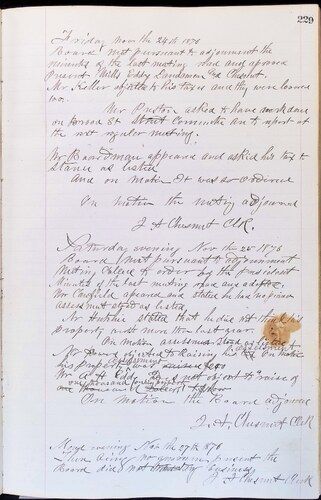 229
Friday Nov the 24th 1876
Board met pursuant to adjournment the
minutes of the last meeting read and approved
Present Mills Eddy Landsman and Chesnut.
Mr Keller objects to his taxes and they were lowered
Mr Preston asked to have work done
on Street Committee are to report at
the next regular meeting.
Mr Boardman appeared and asked his tax to
stand as listed
And on motion it was so ordered
On motion the meeting adjourned
J. A Chesnut Clk.
Saturday evening Nov the 25 1876
Board met pursuant to adjournment
Meeting called to order by the President
Minutes of the last meeting read and
Mr appeared and stated he
assessment as listed
Mr stated that he did not think his
property worth more than last year.
On motion as listed
Mr objected to Raising his tax On motion
his Property
Mr Eddy Did not object to raise of
one thousand
On Motion the Board adjourned
J. A Chesnut Clk
Monday evening Nov the 27th 1876
There being no quorum present the
Board did not business
J A Chesnut Clerk